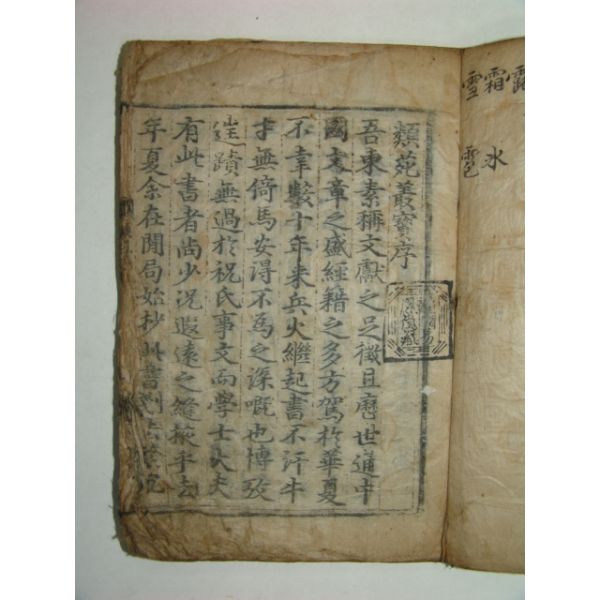 露
霜
雪
氷
雹
類苑叢寶序
吾東素稱文獻之足徵且歷世通中
國文章之盛經籍之多方駕於華夏
不幸數十年来兵火繼起書不汗牛
才無倚馬安得不爲之深嘅也博攷
遑蹟無過於祝氏事文而學士大夫
有此書者尚少况遐遠之縫掖乎去
年夏余在閒局始抄此書